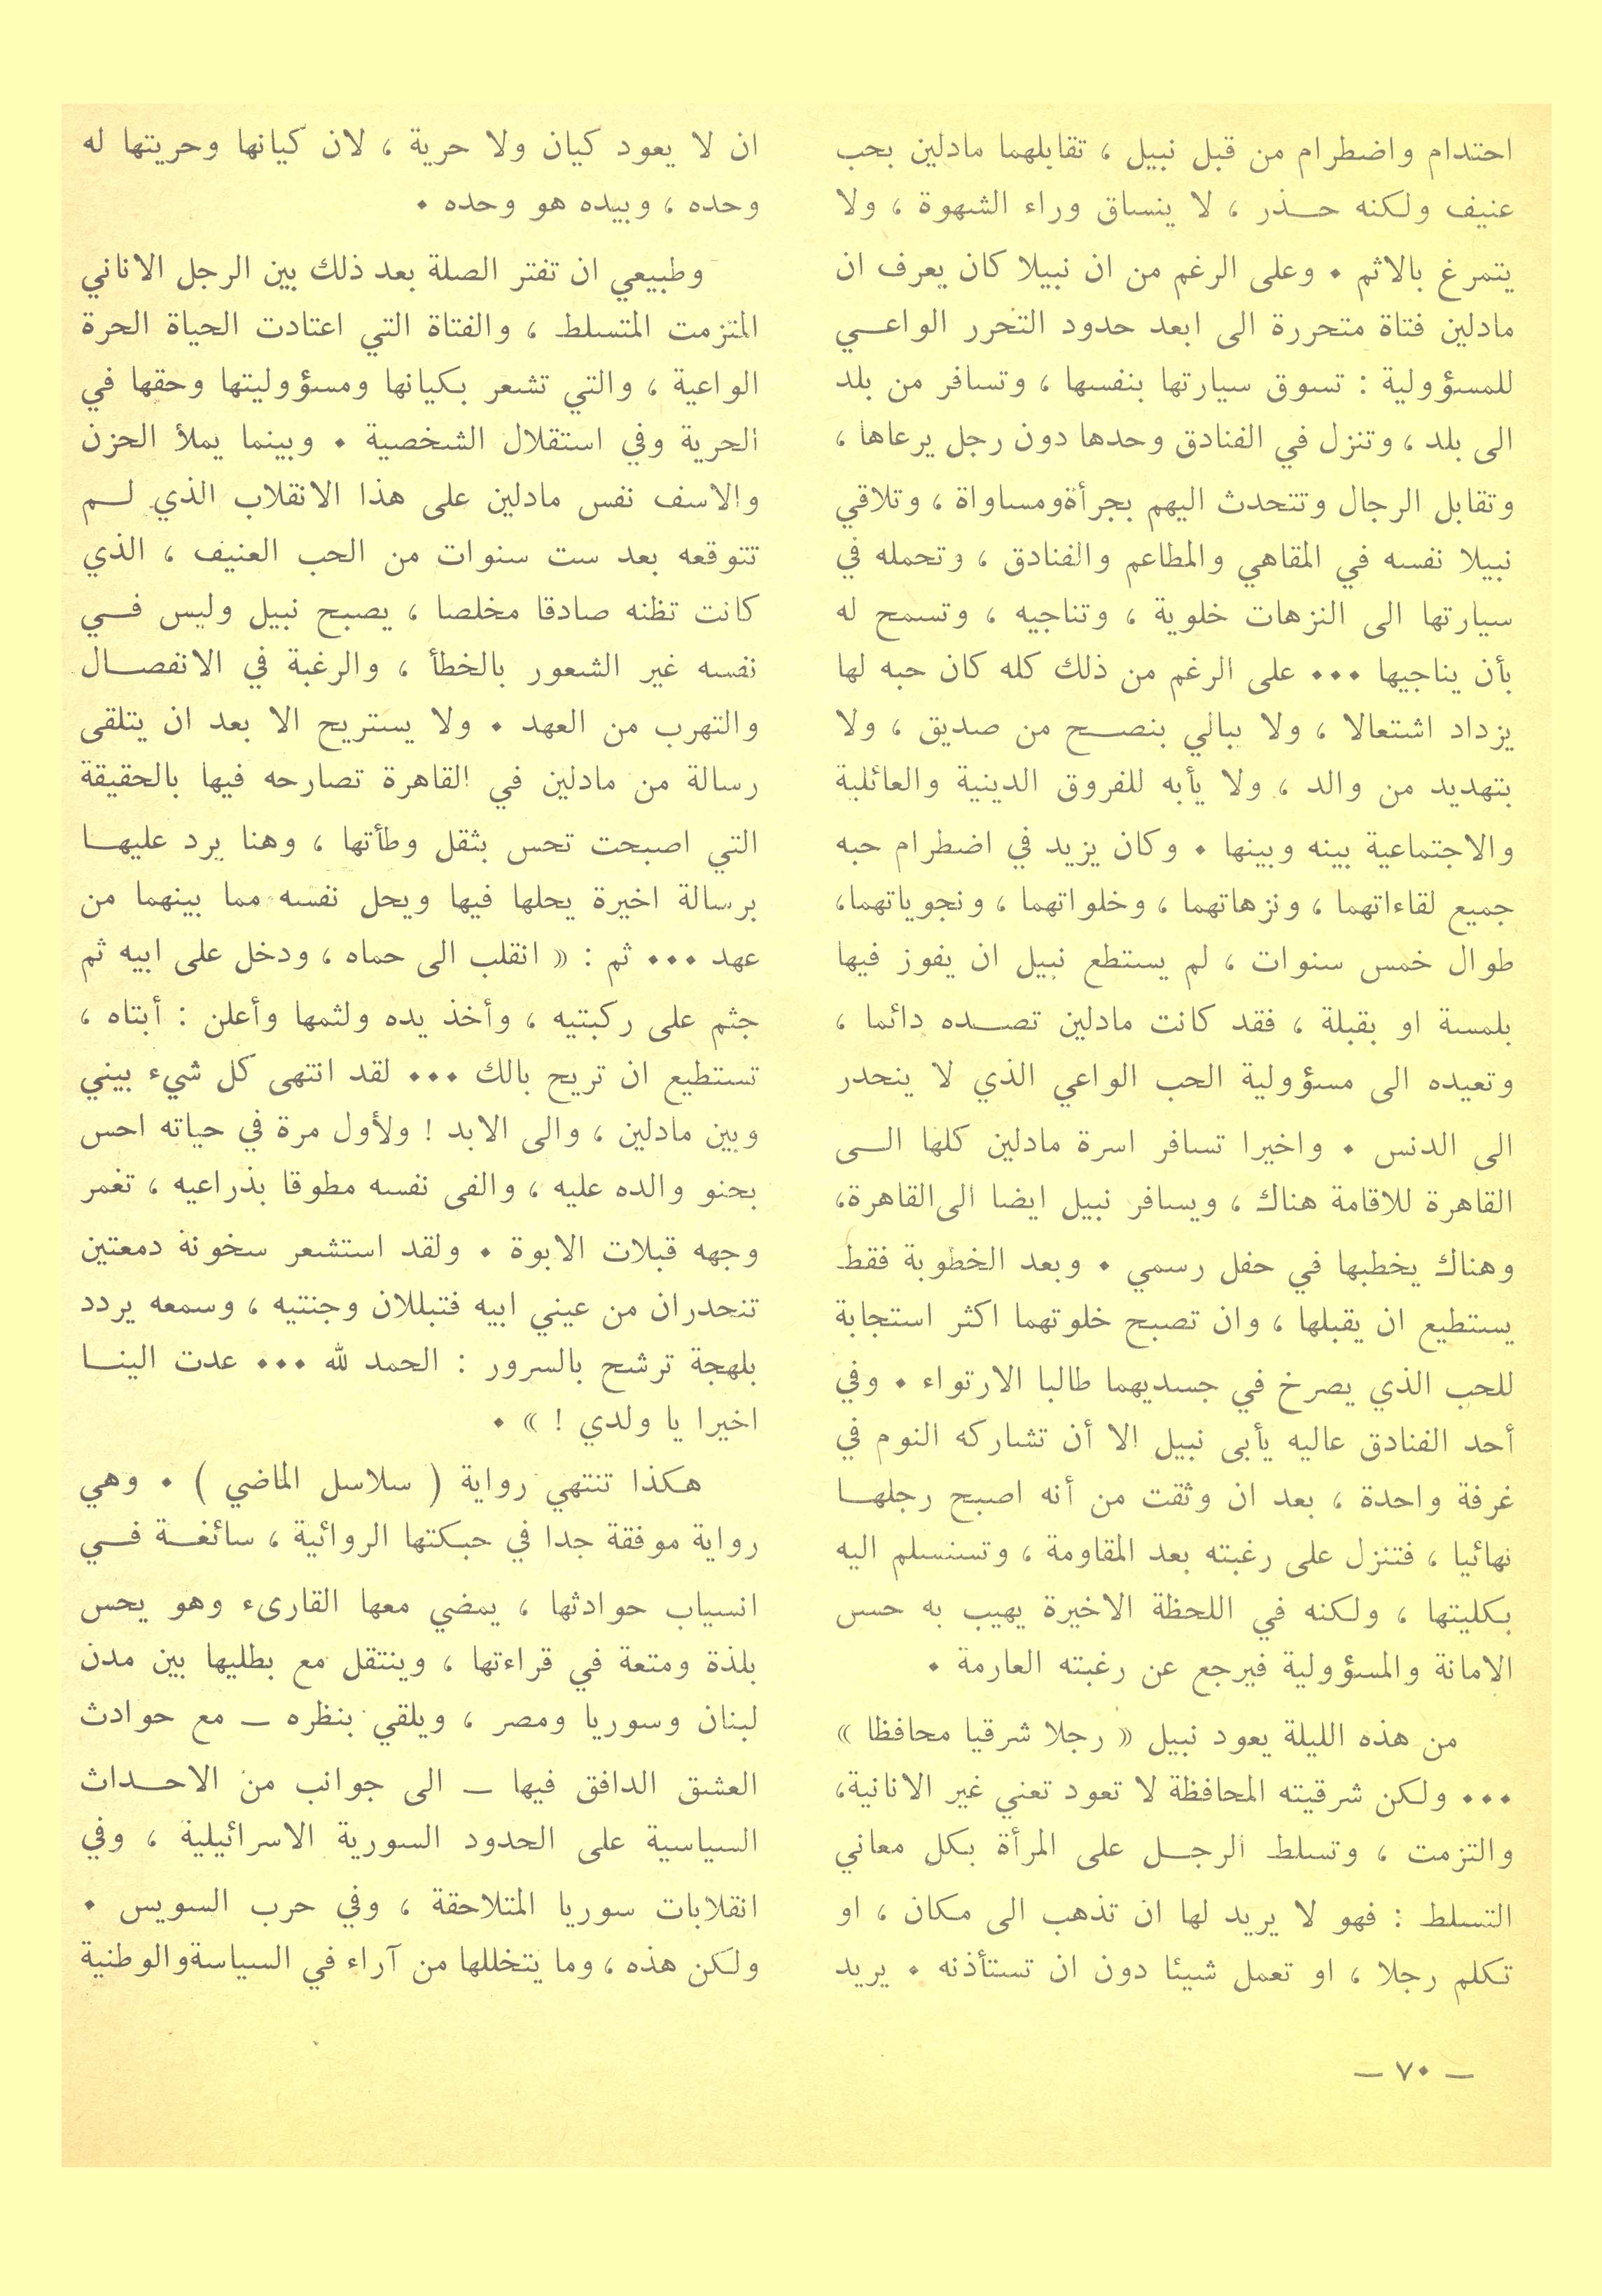 احتدام واضطرام من قبل نبيل ، تقابلهما مادلين بحب
عنيف ولكنه حـــذر ، لا ينساق وراء الشهوة ، ولا
يتمرغ بالاثم • وعلى الرغم من ان نبيلا كان يعرف ان
مادلين فتاة متحررة الى ابعد حدود التحرر الواعـــي
للمسؤولية : تسوق سيارتها بنفسها ، وتسافر من بلد
الى بلد ، وتنزل في الفنادق وحدها دون رجل يرعاها ،
وتقابل الرجال وتتحدث اليهم بجرأة ومساواة ، وتلاقي
نبيلا نفسه في المقاهي والمطاعم والفنادق ، وتحمله في
سيارتها الى النزهات خلوية ، وتناجيه ، وتسمح له
بأن يناجيها ••• على الرغم من ذلك كله كان حبه لها
يزداد اشتعالا ، ولا يبالي بنصـــح من صديق ، ولا
بتهديد من والد ، ولا يأبه للفروق الدينية والعائلية
والاجتماعية بينه وبينها • وكان يزيد في اضطرام حبه
جميع لقاءاتهما ، ونزهاتهما ، وخلواتهما ، ونجوياتهما،
طوال خمس سنوات ، لم يستطع نبيل ان يفوز فيها
بلمسة او بقبلة ، فقد كانت مادلين تصـــده دائما ،
وتعيده الى مسؤولية الحب الواعي الذي لا ينحدر
الى الدنس • واخيرا تسافر اسرة مادلين كلها الـــى
القاهرة للاقامة هناك ، ويسافر نبيل ايضا الى القاهرة،
وهناك يخطبها في حفل رسمي • وبعد الخطوبة فقط
يستطيع ان يقبلها ، وان تصبح خلوتهما اكثر استجابة
للحب الذي يصرخ في جسديهما طالبا الارتواء • وفي
أحد الفنادق عاليه يأبى نبيل الا أن تشاركه النوم في
غرفة واحدة ، بعد ان وثقت من أنه اصبح رجلهـــا
نهائيا ، فتنزل على رغبته بعد المقاومة ، وتستسلم اليه
بكليتها ، ولكنه في اللحظة الاخيرة يهيب به حسس
الامانة والمسؤولية فيرجع عن رغبته العارمة •
من هذه الليلة يعود نبيل « رجلا شرقيا محافظا »
••• ولكن شرقيته المحافظة لا تعود تعني غير الانانية،
والتزمت ، وتسلط الرجـــل على المرأة بكل معاني
التسلط : فهو لا يريد لها ان تذهب الى مكان ، او
تكلم رجلا ، او تعمل شيئا دون ان تستأذنه • يريد
ان لا يعود كيان ولا حرية ، لان كيانها وحريتها له
وحده ، وبيده هو وحده •
وطبيعي ان تفتر الصلة بعد ذلك بين الرجل الاناني
المتزمت المتسلط ، والفتاة التي اعتادت الحياة الحرة
الواعية ، والتي تشعر بكيانها ومسؤوليتها وحقها في
الحرية وفي استقلال الشخصية • وبينما يملأ الحزن
والاسف نفس مادلين على هذا الانقلاب الذي لـــم
تتوقعه بعد ست سنوات من الحب العنيف ، الذي
كانت تظنه صادقا مخلصا ، يصبح نبيل وليس فـــي
نفسه غير الشعور بالخطأ ، والرغبة في الانفصـــال
والتهرب من العهد • ولا يستريح الا بعد ان يتلقى
رسالة من مادلين في القاهرة تصارحه فيها بالحقيقة
التي اصبحت تحس بثقل وطأتها ، وهنا يرد عليهـــا
برسالة اخيرة يحلها فيها ويحل نفسه مما بينهما من
عهد ••• ثم : « انقلب الى حماه ، ودخل على ابيه ثم
جثم على ركبتيه ، وأخذ يده ولثمها وأعلن : أبتاه ،
تستطيع ان تريح بالك ••• لقد انتهى كل شيء بيني
وبين مادلين ، والى الابد ! ولأول مرة في حياته احس
بحنو والده عليه ، والفى نفسه مطوقا بذراعيه ، تغمر
وجهه قبلات الابوة • ولقد استشعر سخونة دمعتين
تنحدران من عيني ابيه فتبللان وجنتيه ، وسمعه يردد
بلهجة ترشح بالسرور : الحمد لله ••• عدت الينـــا
اخيرا يا ولدي ! » •
هكذا تنتهي رواية ( سلاسل الماضي ) • وهي
رواية موفقة جدا في حبكتها الروائية ، سائغـــة فـــي
انسياب حوادثها ، يمضي معها القارىء وهو يحس
بلذة ومتعة في قراءتها ، وينتقل مع بطليها بين مدن
لبنان وسوريا ومصر ، ويلقي بنظره ــ مع حوادث
العشق الدافق فيها ــ الى جوانب من الاحـــداث
السياسية على الحدود السورية الاسرائيلية ، وفي
انقلابات سوريا المتلاحقة ، وفي حرب السويس •
ولكن هذه ، وما يتخللها من آراء في السياسة والوطنية
ــ ٧٠ ــ